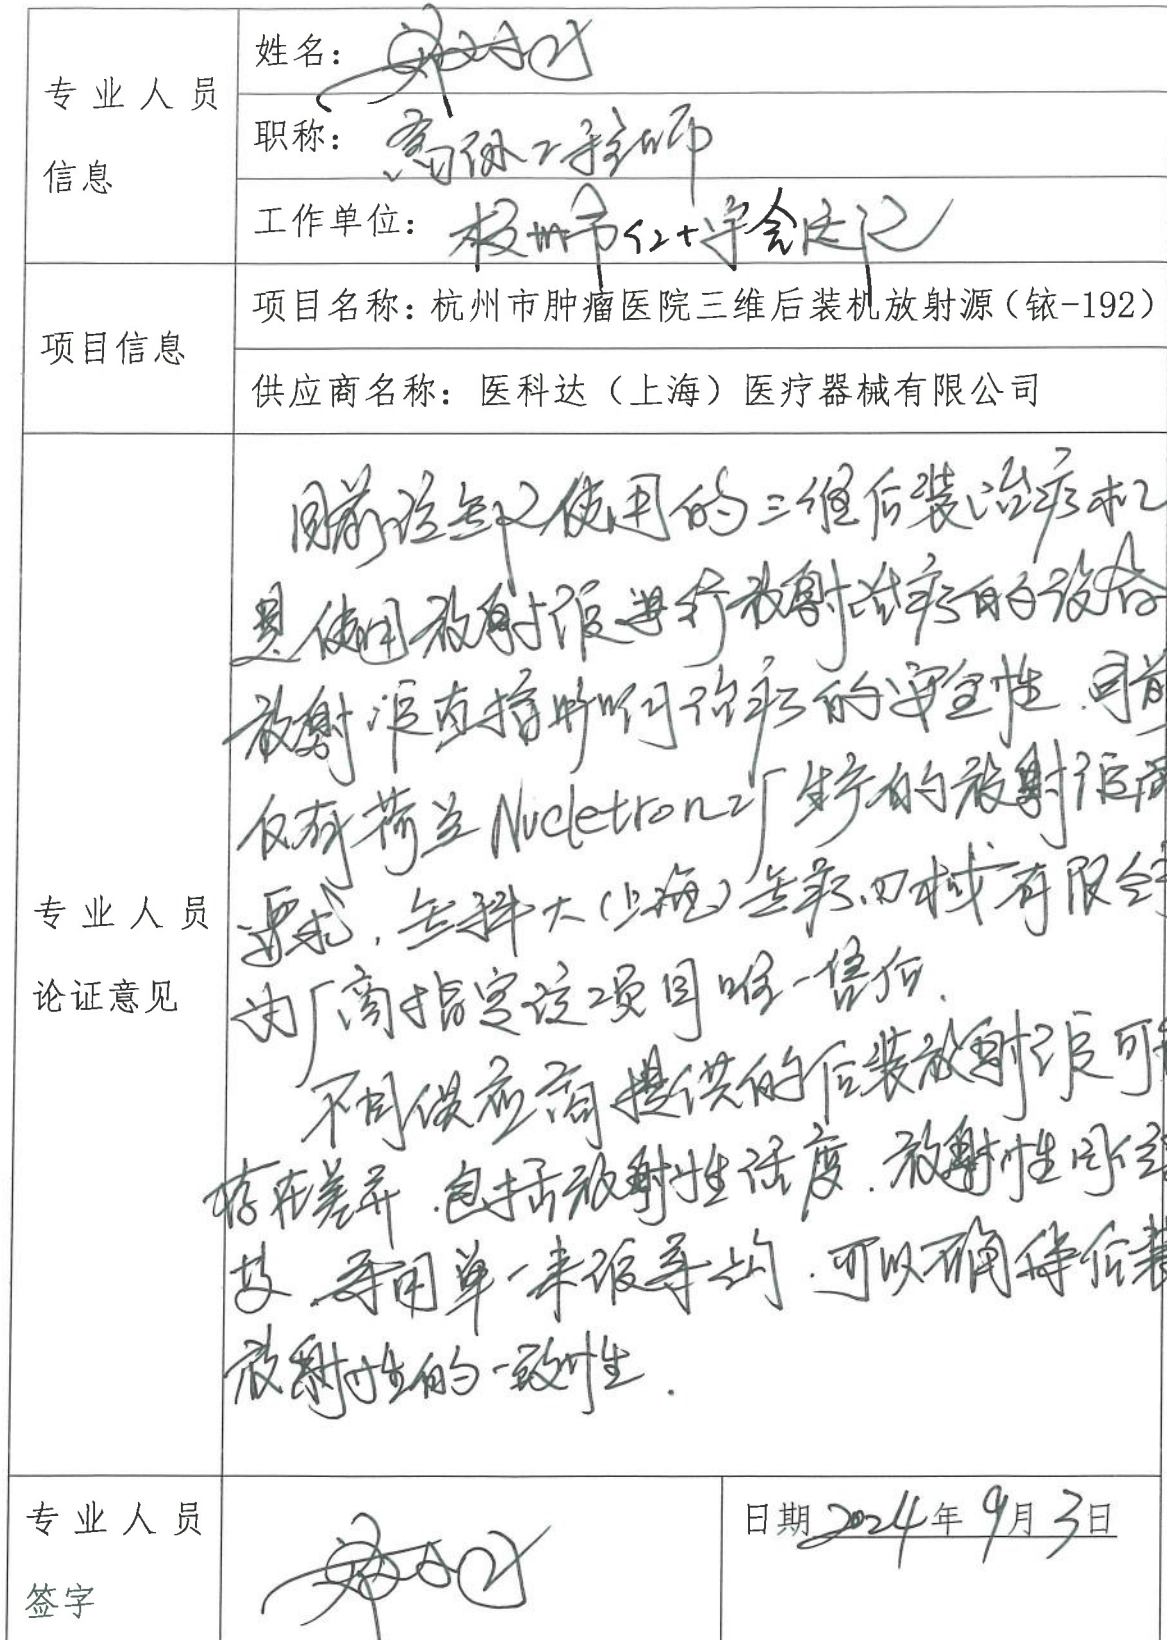 专业人员
信息
姓名：
职称：高级工程师
工作单位：杭州市红十字会医院
项目信息
项目名称：杭州市肿瘤医院三维后装机放射源（铱-192）
供应商名称：医科达（上海）医疗器械有限公司
专业人员
论证意见
目前该医院使用的三维后装治疗机
是使用放射源进行放射治疗的设备
放射源直接影响治疗的安全性.目前
仅有荷兰Nucletron工厂生产的放射源
要求，医科大（上海）医疗器械有限公
为厂商指定该项目唯一售后.
不同供应商提供的后装放射源可
存在差异.包括放射性活度.放射性同位
.采用单一来源采购.可以确保后装
放射性的一致性.
专业人员
签字
日期2024年9月3日